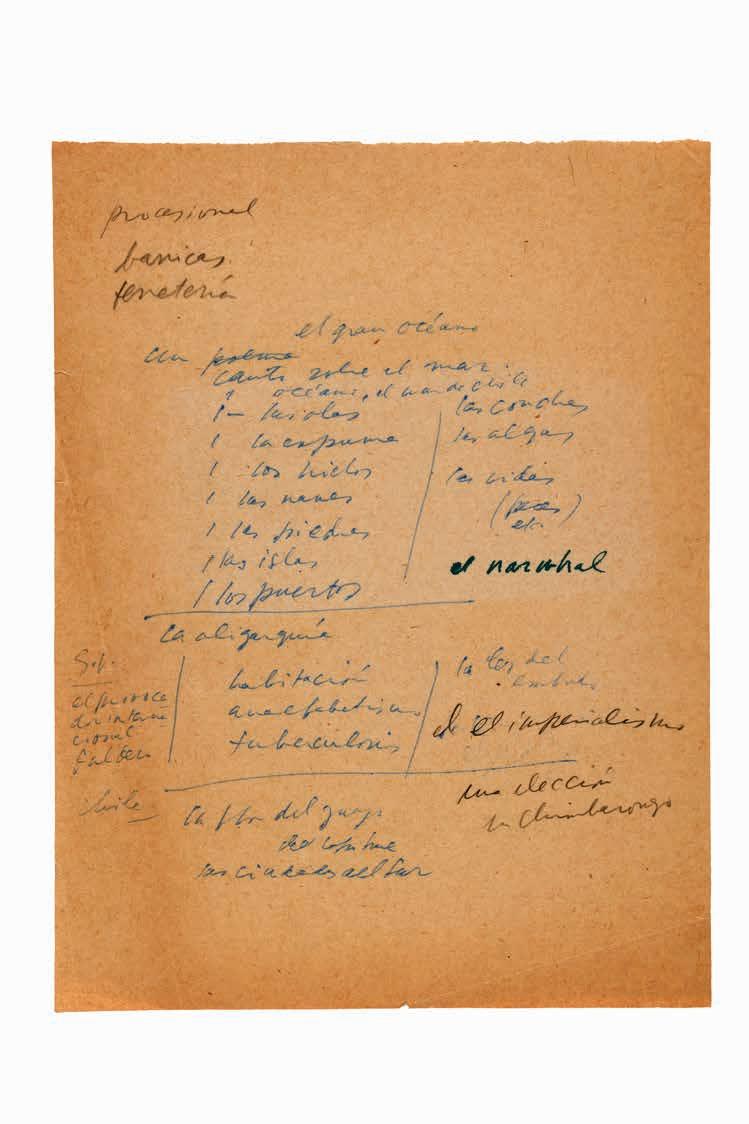 procesional
barricas
ferretería
el gran océano
un poema
canto sobre el mar.
1 océano, el mar de chile
1- las olas
1 la espuma
1 los hielos
1 las naves
1 las piedras
1 las islas
1 los puertos
las conchas
las algas
las vidas
(peces)
etc.
el narwhal
la oligarquía
G.V.
el provoca
dor interna
cional
habitación
analfabetismo
tuberculosis
la ley del
embudo
el imperialismo
una elección
en Chimbarongo
Chile
la flor del
del copihue
las ciudades del Sur